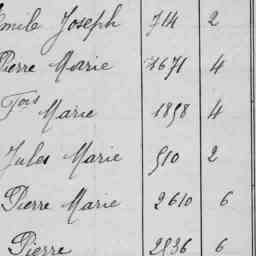 Emile Joseph 714 2
Pierre Marie 1671 4
Fois Marie 1898 4
Jules Marie 910 2
Pierre Marie 2610 6
Pierre 2536 6